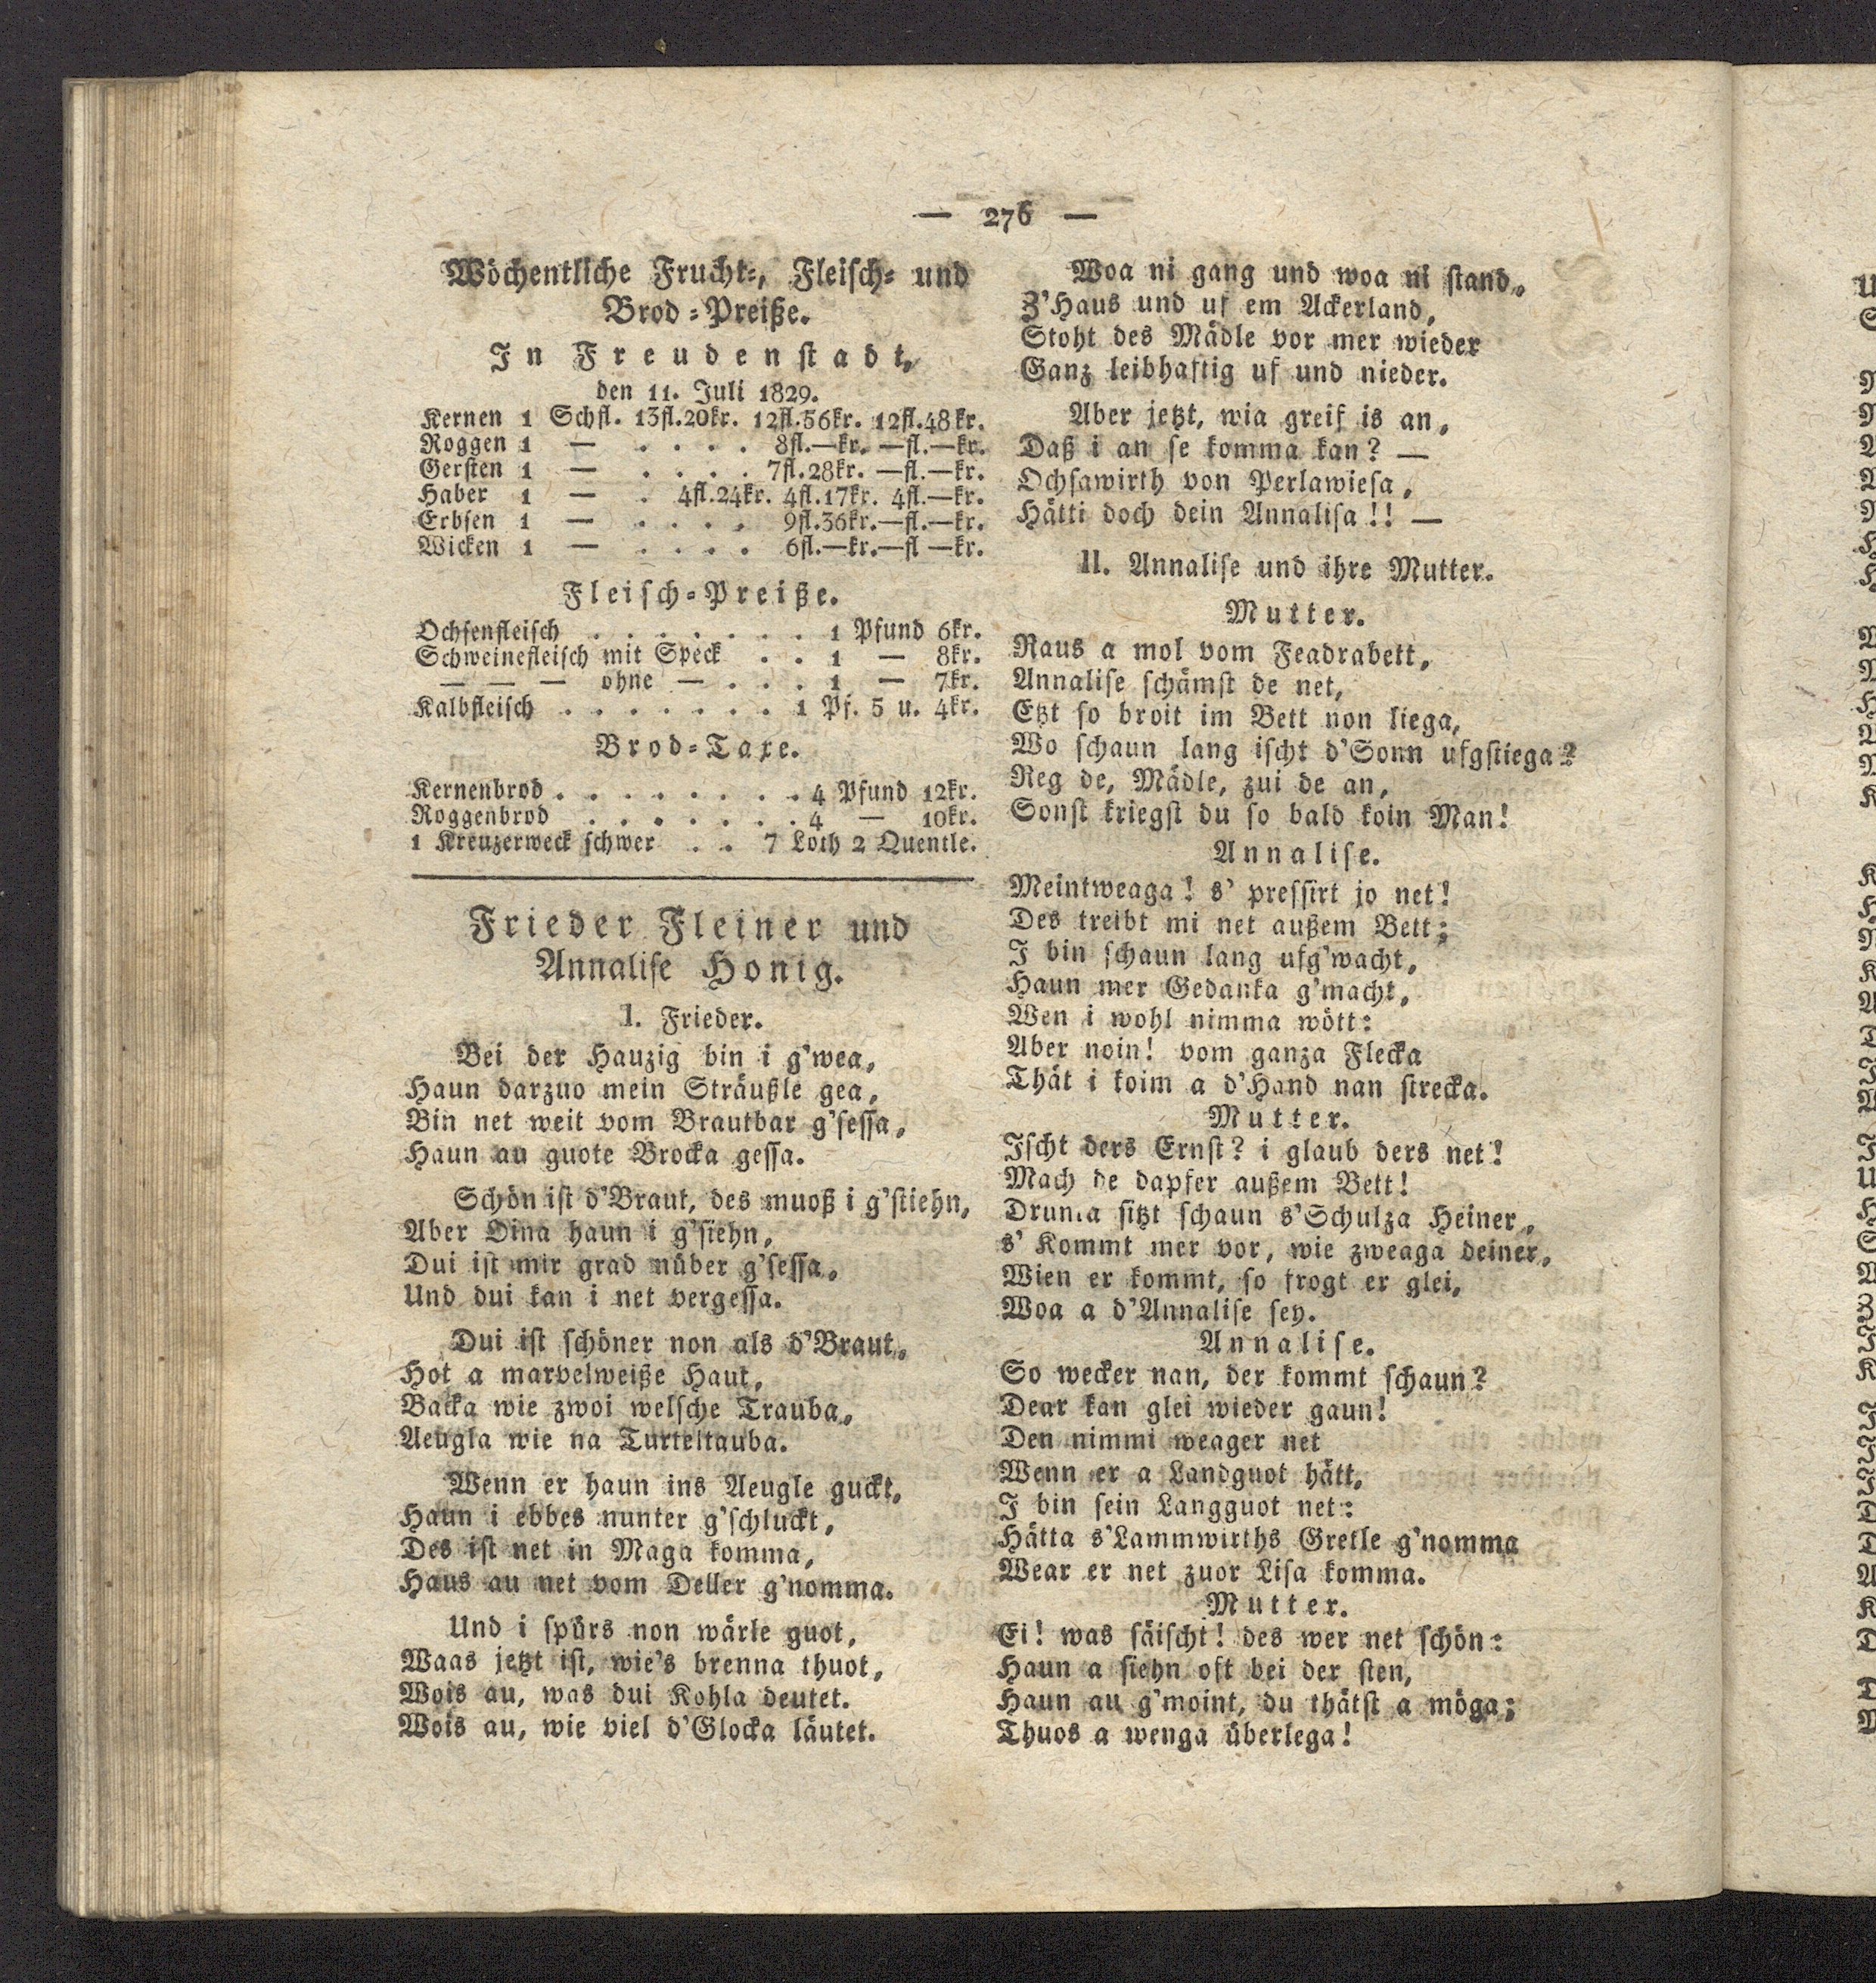 — 276 —
Wöchentliche Frucht-, Fleisch- und
Brod-Preiße.
In Freudenstadt,
den 11. Juli 1829.
Kernen 1 Schfl. 13fl.20kr. 12fl.56kr. 12fl.48kr.
Roggen 1 — . . . . 8fl.—kr. —fl.—kr.
Gersten 1 — . . . . 7fl.28kr. —fl.—kr.
Haber 1 — . 4fl.24kr. 4fl.17kr. 4fl.—kr.
Erbsen 1 — . . . . 9fl.36kr.—fl.—kr.
Wicken 1 — . . . . 6fl.—kr.—fl —kr.
Fleisch-Preiße.
Ochsenfleisch . . . . . . . 1 Pfund 6kr.
Schweinefleisch mit Speck . . 1 — 8kr.
— — — ohne — . . . 1 — 7kr.
Kalbfleisch . . . . . . . 1 Pf. 5 u. 4kr.
Brod-Taxe.
Kernenbrod . . . . . . . . 4 Pfund 12kr.
Roggenbrod . . . . . . . 4 — 10kr.
1 Kreuzerweck schwer . . 7 Loth 2 Quentle.
Frieder Fleiner und
Annalise Honig.
I. Frieder.
Bei der Hauzig bin i g'wea,
Haun darzuo mein Sträußle gea,
Bin net weit vom Brautbar g'sessa,
Haun au guote Brocka gessa.
Schön ist d'Braut, des muoß i g'stiehn,
Aber Oina haun i g'siehn,
Dui ist mir grad nüber g'sessa,
Und dui kan i net vergessa.
Dui ist schöner non als d'Braut,
Hot a marvelweiße Haut,
Backa wie zwoi welsche Trauba,
Aeugla wie na Turteltauba.
Wenn er haun ins Aeugle guckt,
Haun i ebbes nunter g'schluckt,
Des ist net in Maga komma,
Haus au net vom Deller g'nomma.
Und i spürs non wärle guot,
Waas jetzt ist, wie's brenna thuot,
Wois au, was dui Kohla deutet.
Wois au, wie viel d'Glocka läutet.
Woa ni gang und woa ni stand,
Z'Haus und uf em Ackerland,
Stoht des Mädle vor mer wieder
Ganz leibhaftig uf und nieder.
Aber jetzt, wia greif is an,
Daß i an se komma kan? —
Ochsawirth von Perlawiesa,
Hätti doch dein Annalisa!! —
II. Annalise und ihre Mutter.
Mutter.
Raus a mol vom Feadrabett,
Annalise schämst de net,
Etzt so broit im Bett non liega,
Wo schaun lang ischt d'Sonn ufgstiega?
Reg de, Mädle, zui de an,
Sonst kriegst du so bald koin Man!
Annalise.
Meintweaga! s' pressirt jo net!
Des treibt mi net außem Bett;
I bin schaun lang ufg'wacht,
Haun mer Gedanka g'macht,
Wen i wohl nimma wött:
Aber noin! vom ganza Flecka
Thät i koim a d'Hand nan strecka.
Mutter.
Ischt ders Ernst? i glaub ders net!
Mach de dapfer außem Bett!
Drunta sitzt schaun s'Schulza Heiner,
s' Kommt mer vor, wie zweaga deiner,
Wien er kommt, so frogt er glei,
Woa a d'Annalise sey.
Annalise.
So wecker nan, der kommt schaun?
Dear kan glei wieder gaun!
Den nimmi weager net
Wenn er a Landguot hätt,
I bin sein Langguot net:
Hätta s'Lammwirths Gretle g'nomma
Wear er net zuor Lisa komma.
Mutter.
Ei! was säischt! des wer net schön:
Haun a siehn oft bei der sten,
Haun au g'moint, du thätst a möga;
Thuos a wenga überlega!